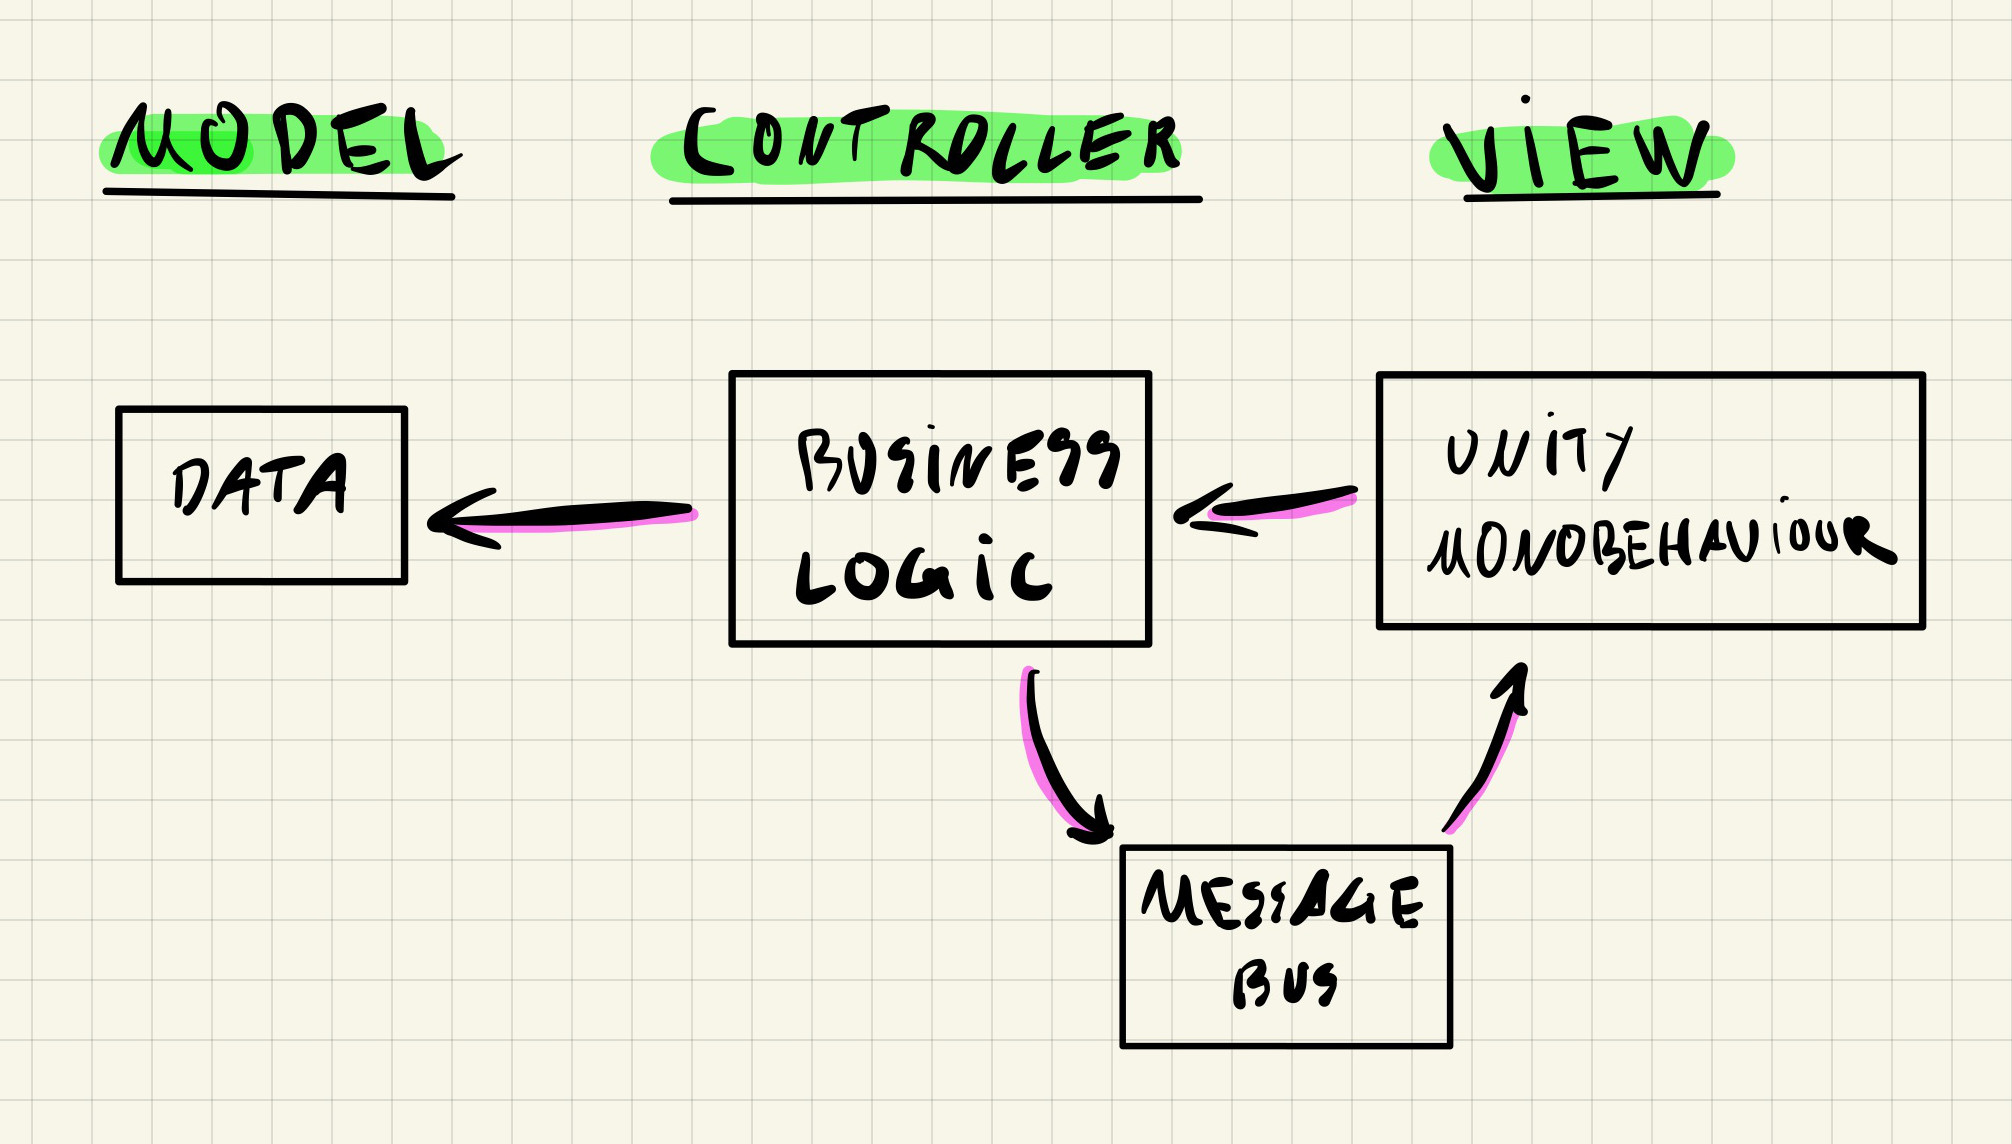 MODEL
CONTROLLER
VIEW
DATA
BUSINESS
LOGIC
UNITY
MONOBEHAVIOUR
MESSAGE
BUS